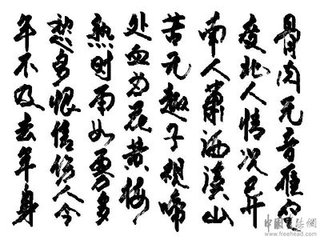 骨肉无音雁空
度北人情况异
南人萧洒溪山
苦无趣子规啼
处血为花黄梅
熟时雨如雾多
愁多恨信伤人今
年不及去年身
www.freehead.com